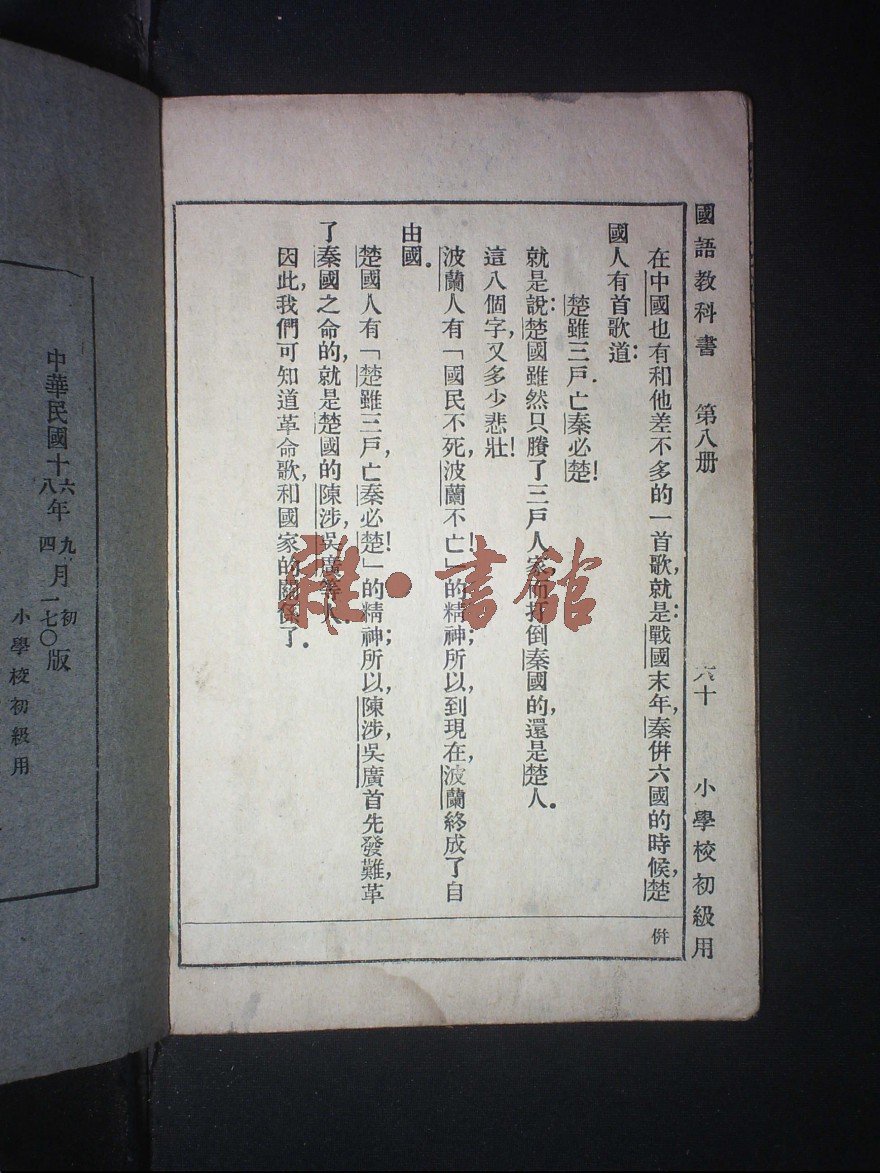 國語教科書 第八册 六十 小學校初級用
在中國也有和他差不多的一首歌,就是:戰國末年,秦倂六國的時候,楚
國人有首歌道:
楚雖三戶.亡秦必楚!
就是說:楚國雖然只賸了三戶人家,而打倒秦國的,還是楚人.
這八個字,又多少悲壯!
波蘭人有「國民不死,波蘭不亡!」的精神;所以,到現在,波蘭終成了自
由國.
楚國人有「楚雖三戶,亡秦必楚!」的精神;所以,陳涉,吳廣首先發難,革
了秦國之命的,就是楚國的陳涉,吳廣等人.
因此,我們可知道革命歌,和國家的關係了.
倂
雜·書館
中華民國十六年九月初版
十八年四月一七〇版
小學校初級用